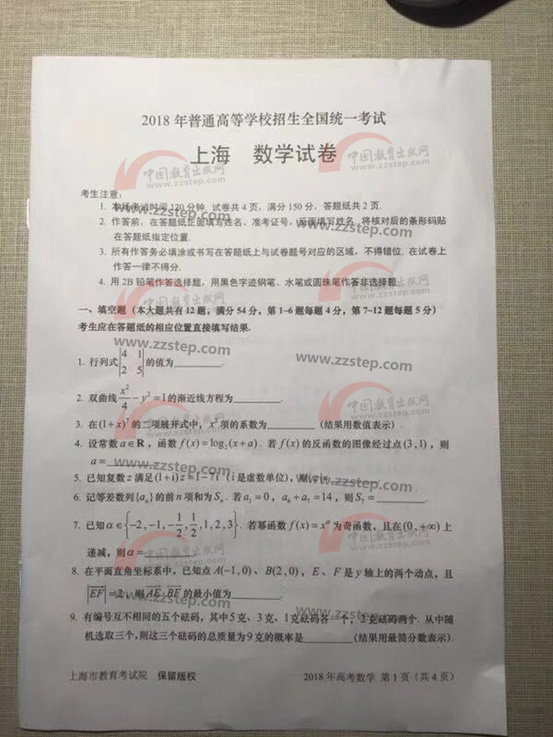 2018 年普通高等学校招生全国统一考试
上海 数学试卷
考生注意：
1. 本场考试时间 120 分钟. 试卷共 4 页, 满分 150 分, 答题纸共 2 页.
2. 作答前, 在答题纸正面填写姓名、准考证号, 反面填写姓名, 将核对后的条形码贴
在答题纸指定位置.
3. 所有作答务必填涂或书写在答题纸上与试卷题号对应的区域, 不得错位. 在试卷上
作答一律不得分.
4. 用 2B 铅笔作答选择题, 用黑色字迹钢笔、水笔或圆珠笔作答非选择题.
一、填空题（本大题共有 12 题，满分 54 分，第 1~6 题每题 4 分，第 7~12 题每题 5 分）
考生应在答题纸的相应位置直接填写结果.
1. 行列式 |4 1; 2 5| 的值为________.
2. 双曲线 x²/4 − y² = 1 的渐近线方程为________.
3. 在 (1+x)⁷ 的二项展开式中, x² 项的系数为________. （结果用数值表示）.
4. 设常数 a∈R，函数 f(x)=log₂(x+a). 若 f(x) 的反函数的图像经过点 (3,1)，则
a=________.
5. 已知复数 z 满足 (1+i)z=1−7i（i 是虚数单位）, 则 |z|=________.
6. 记等差数列 {aₙ} 的前 n 项和为 Sₙ. 若 a₃=0, a₆+a₇=14，则 S₇=________.
7. 已知 α∈{−2,−1,−1/2,1/2,1,2,3}. 若幂函数 f(x)=x^α 为奇函数，且在 (0,+∞) 上
递减，则 α=________.
8. 在平面直角坐标系中，已知点 A(−1,0)、B(2,0)，E、F 是 y 轴上的两个动点，且
|EF|=2，则 AE·BE 的最小值为________.
9. 有编号互不相同的五个砝码, 其中 5 克、3 克、1 克砝码各一个，2 克砝码两个. 从中随
机选取三个, 则这三个砝码的总质量为 9 克的概率是________（结果用最简分数表示）.
上海市教育考试院 保留版权
2018 年高考数学 第 1 页（共 4 页）
中国教育出版网
www.zzstep.com
中国教育出版网
www.zzstep.com
中国教育出版网
www.zzstep.com
中国教育出版网
www.zzstep.com
www.zzstep.com
www.zzstep.com
中国教育出版网
www.zzstep.com
中国教育出版网
www.zzstep.com
中国教育出版网
www.zzstep.com